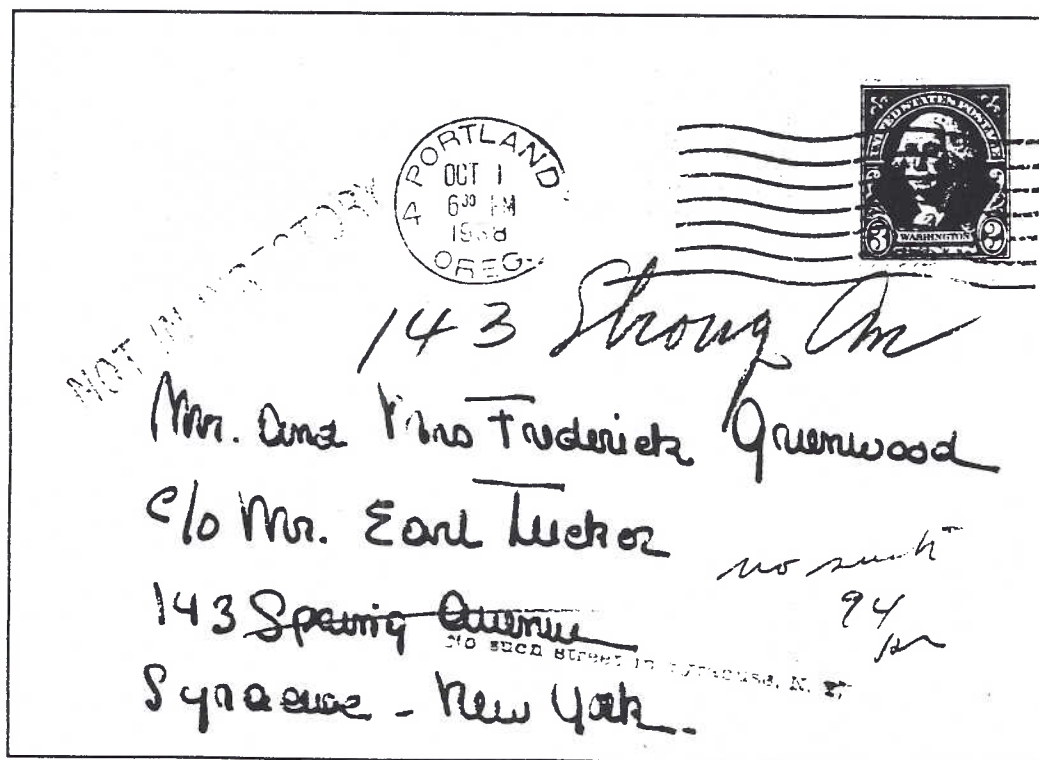 PORTLAND
OCT 1
6 30 PM
1938
OREG.
UNITED STATES POSTAGE
3 WASHINGTON 3
NOT IN DIRECTORY
143 Strong Ave
Mr. and Mrs Frederick Greenwood
c/o Mr. Earl Tucker
143 Spring Avenue
No such street in Syracuse, N. Y.
Syracuse - New York.
no such
94